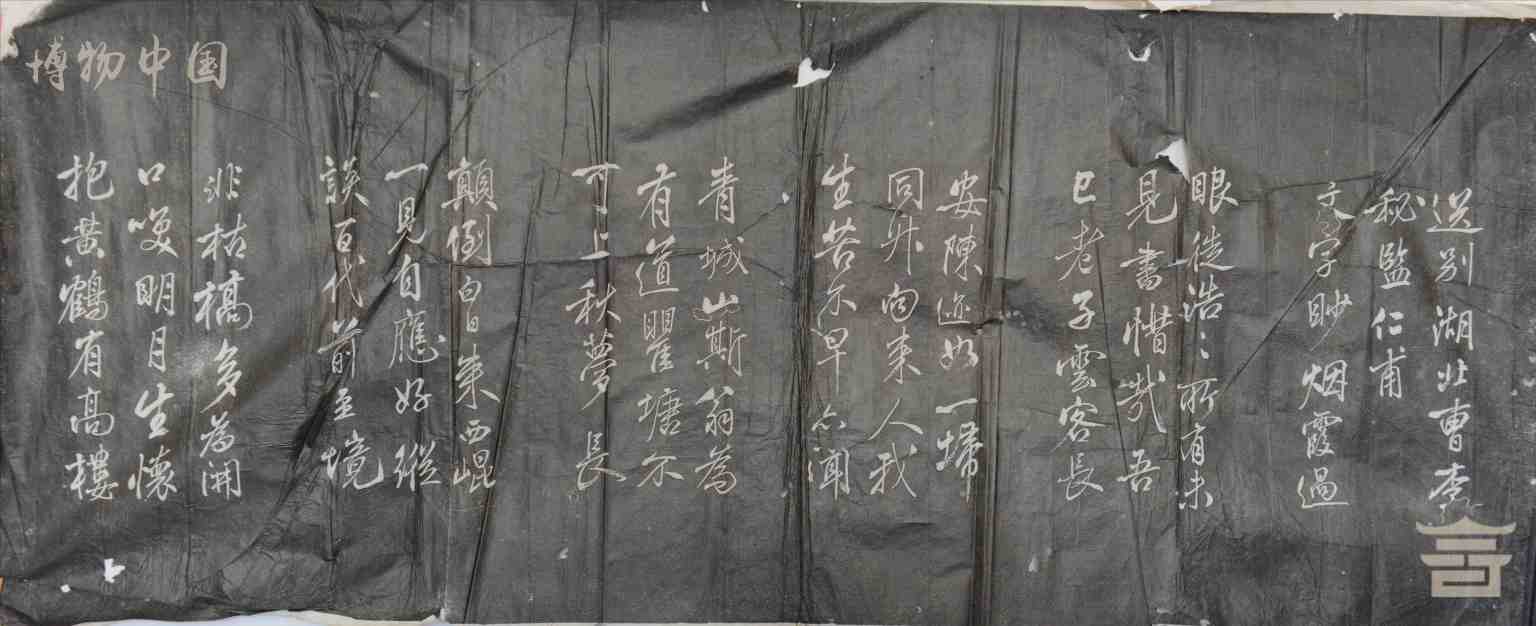 博物中国
送别湖北曹李
秘监仁甫
文字眇烟霞過
眼徒浩〻所有未
見書惜哉吾
已老子雲客長
安陳迹如一埽
同升向來人我
生苦不早忽聞
青城山斯翁爲
有道瞿塘不
可上秋夢長
顛倒白日來西崐
一見自應好縱
談百代前至境
非枯槁多爲開
口笑明月生懷
抱黄鶴有高樓